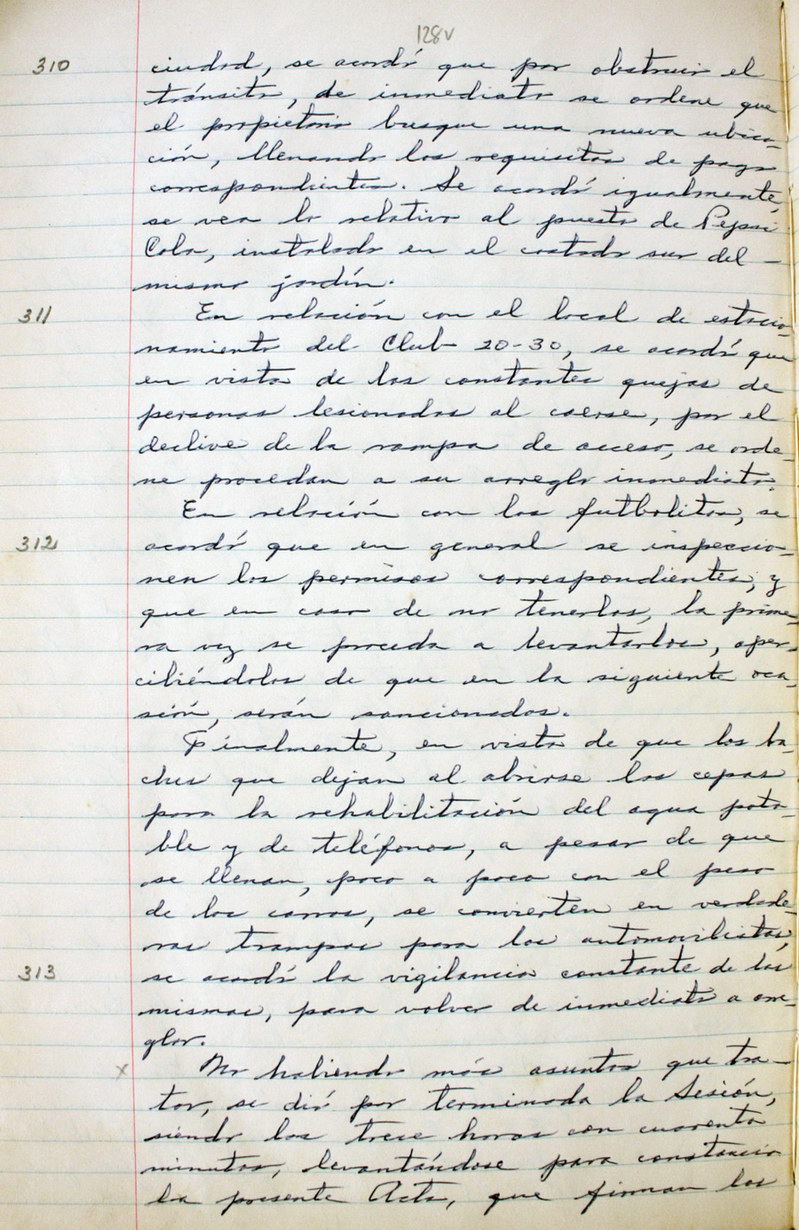 128v
310 ciudad, se acordó que por obstruir el
tránsito, de inmediato se ordene que
el propietario busque una nueva ubica-
ción, llenando los requisitos de pago
correspondientes. Se acordó igualmente,
se vea lo relativo al puesto de Pepsi
Cola, instalado en el costado sur del -
mismo jardín.
311 En relación con el local de estacio-
namiento del Club 20-30, se acordó que
en vista de las constantes quejas de
personas lesionadas al caerse, por el
declive de la rampa de acceso, se orde-
ne procedan a su arreglo inmediato.
En relación con los futbolitos, se
312 acordó que en general se inspeccio-
nen los permisos correspondientes, y
que en caso de no tenerlos, la prime-
ra vez se proceda a levantarlos, aper-
cibiéndolos de que en la siguiente oca-
sión, serán sancionados.
Finalmente, en vista de que los ba-
ches que dejan al abrirse las cepas
para la rehabilitación del agua pota-
ble y de teléfonos, a pesar de que
se llenan, poco a poco con el peso
de los carros, se convierten en verdade-
ras trampas para los automovilistas,
313 se acordó la vigilancia constante de las
mismas, para volver de inmediato a arre-
glar.
x No habiendo más asuntos que tra-
tar, se dió por terminada la Sesión,
siendo las trece horas con cuarenta
minutos, levantándose para constancia
la presente Acta, que firman los